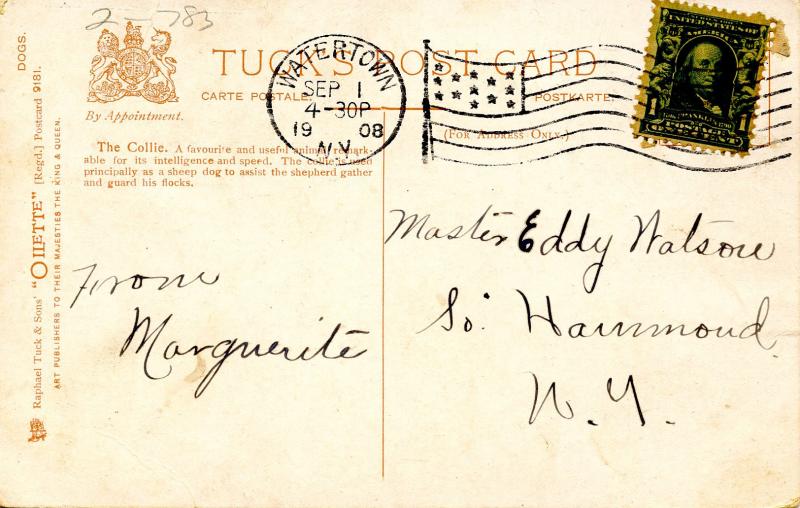 2-783
TUCK'S POST CARD
CARTE POSTALE
POSTKARTE
(FOR ADDRESS ONLY.)
By Appointment.
The Collie. A favourite and useful animal remark-
able for its intelligence and speed. The collie is used
principally as a sheep dog to assist the shepherd gather
and guard his flocks.
WATERTOWN
SEP 1
4-30P
1908
N.Y.
UNITED STATES OF
AMERICA
1 1
POSTAGE
ONE CENT
From
Marguerite
Master Eddy Watson
So. Hammond
N. Y.
DOGS.
Raphael Tuck & Sons' "OILETTE" [Regd.] Postcard 9181.
ART PUBLISHERS TO THEIR MAJESTIES THE KING & QUEEN.